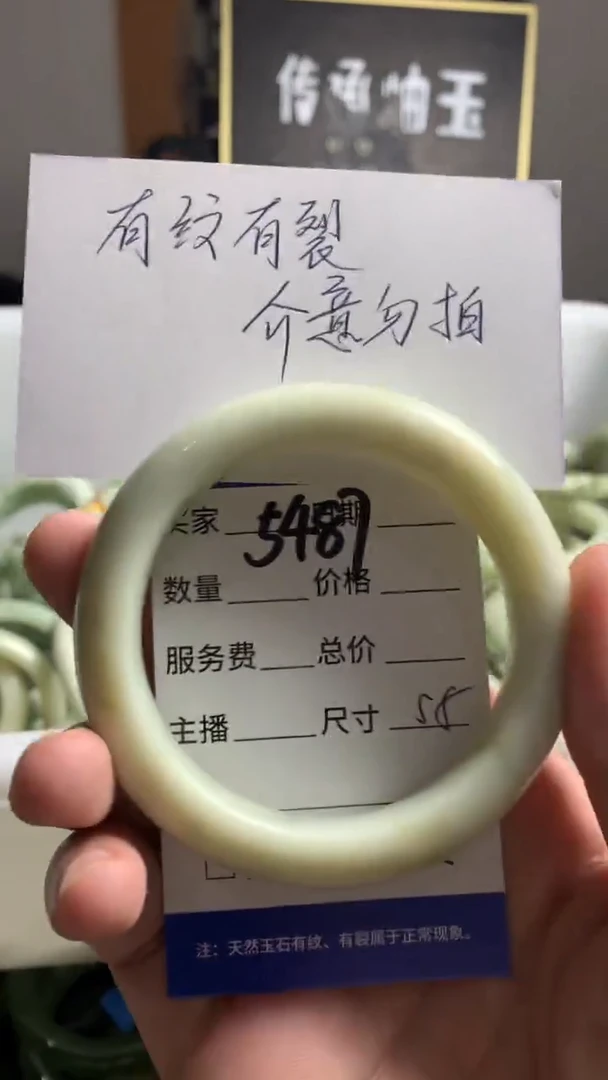 传承岫玉
有纹有裂
介意勿拍
买家 日期
5487
数量 价格
服务费 总价
主播 尺寸 58
注：天然玉石有纹、有裂属于正常现象。